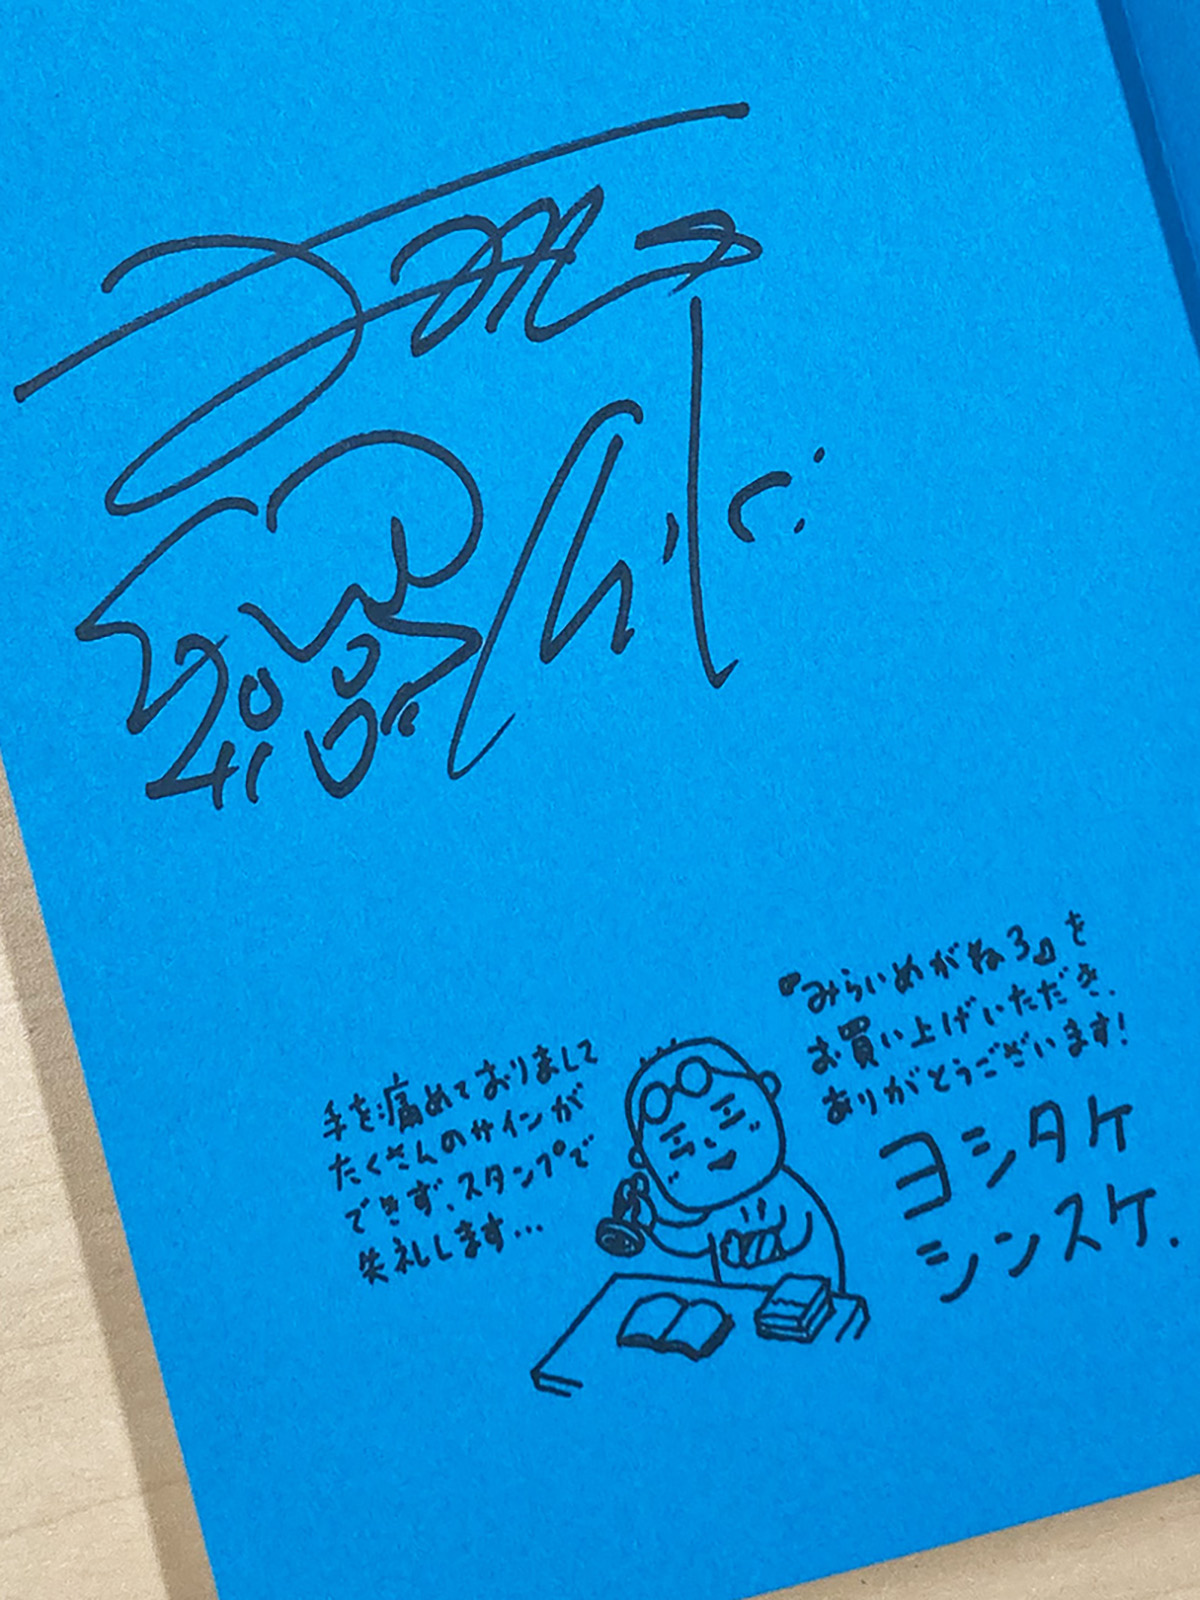 『みらいめがね3』を
お買い上げいただき、
ありがとうございます!
ヨシタケ
シンスケ.
手を痛めておりまして
たくさんのサインが
できず、スタンプで
失礼します…